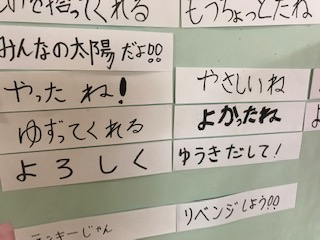 を捨ってくれる
もうちょっとだね
みんなの太陽だよ!!
やったね!
やさしいね
ゆずってくれる
よかったね
よろしく
ゆうきだして!
リベンジしよう!!
ラッキーじゃん